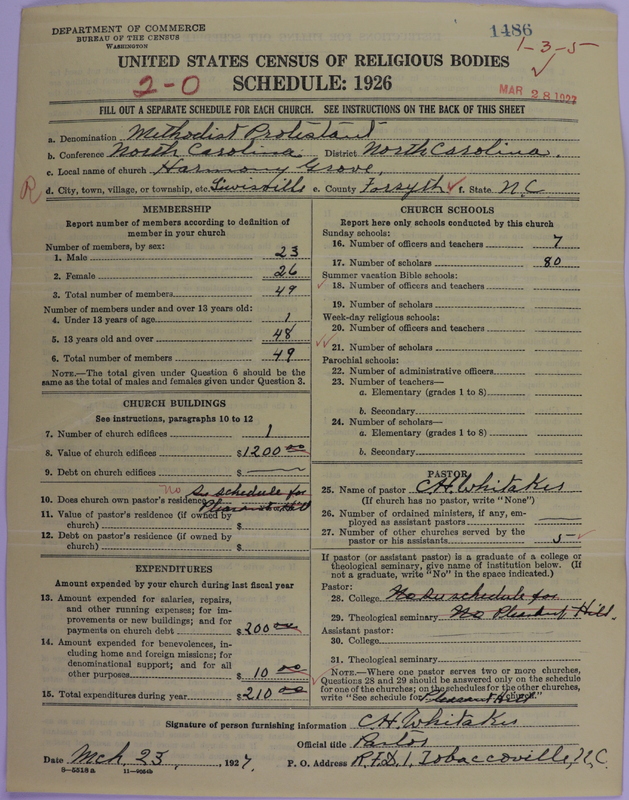 DEPARTMENT OF COMMERCE
BUREAU OF THE CENSUS
WASHINGTON
1486
1-3-5
UNITED STATES CENSUS OF RELIGIOUS BODIES
2-0
SCHEDULE: 1926
MAR 28 1927
FILL OUT A SEPARATE SCHEDULE FOR EACH CHURCH. SEE INSTRUCTIONS ON THE BACK OF THIS SHEET
a. Denomination Methodist Protestant
b. Conference North Carolina District North Carolina.
c. Local name of church Harmony Grove,
R d. City, town, village, or township, etc. Lewisville e. County Forsyth f. State N.C
MEMBERSHIP
Report number of members according to definition of
member in your church
Number of members, by sex:
1. Male 23
2. Female 26
3. Total number of members 49
Number of members under and over 13 years old:
4. Under 13 years of age 1
5. 13 years old and over 48
6. Total number of members 49
NOTE.—The total given under Question 6 should be the
same as the total of males and females given under Question 3.
CHURCH BUILDINGS
See instructions, paragraphs 10 to 12
7. Number of church edifices 1
8. Value of church edifices $1200 00
9. Debt on church edifices $
no See schedule for
10. Does church own pastor's residence
Pleasant Hill
11. Value of pastor's residence (if owned by
church) $
12. Debt on pastor's residence (if owned by
church) $
EXPENDITURES
Amount expended by your church during last fiscal year
13. Amount expended for salaries, repairs,
and other running expenses; for im-
provements or new buildings; and for
payments on church debt $200 00
14. Amount expended for benevolences, in-
cluding home and foreign missions; for
denominational support; and for all
other purposes $ 10 00
15. Total expenditures during year $210 00
CHURCH SCHOOLS
Report here only schools conducted by this church
Sunday schools:
16. Number of officers and teachers 7
17. Number of scholars 80
Summer vacation Bible schools:
18. Number of officers and teachers
19. Number of scholars
Week-day religious schools:
20. Number of officers and teachers
21. Number of scholars
Parochial schools:
22. Number of administrative officers
23. Number of teachers—
a. Elementary (grades 1 to 8)
b. Secondary
24. Number of scholars—
a. Elementary (grades 1 to 8)
b. Secondary
PASTOR
25. Name of pastor C.H. Whitaker
(If church has no pastor, write "None")
26. Number of ordained ministers, if any, em-
ployed as assistant pastors
27. Number of other churches served by the
pastor or his assistants 5
If pastor (or assistant pastor) is a graduate of a college or
theological seminary, give name of institution below. (If
not a graduate, write "No" in the space indicated.)
Pastor:
28. College No see schedule for
29. Theological seminary No Pleasant Hill.
Assistant pastor:
30. College
31. Theological seminary
NOTE.—Where one pastor serves two or more churches,
Questions 28 and 29 should be answered only on the schedule
for one of the churches; on the schedules for the other churches,
write "See schedule for Pleasant Hill church."
Signature of person furnishing information C.H. Whitaker
Official title Pastor
Date Mch 23, 1927. P. O. Address R.F.D. 1, Tobaccoville, N.C.
8—5518 a 11—9054b